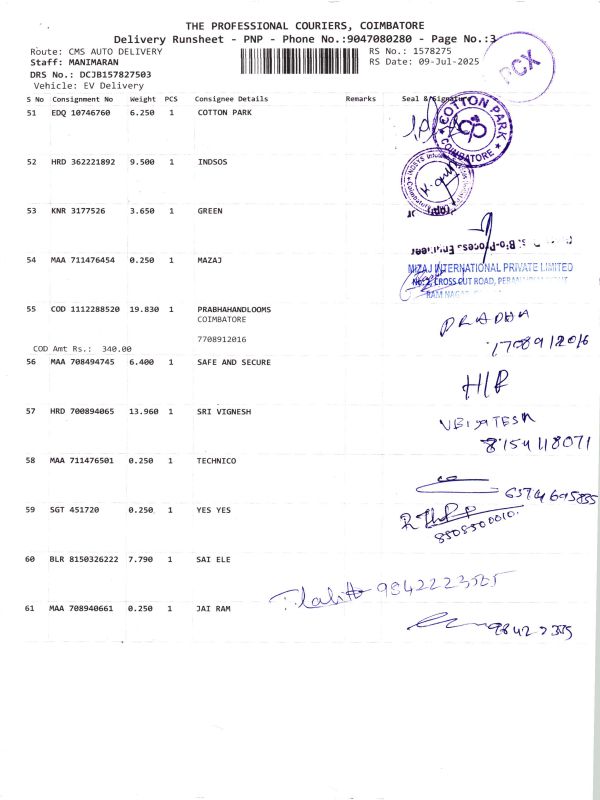 THE PROFESSIONAL COURIERS, COIMBATORE
Delivery Runsheet - PNP - Phone No.:9047080280 - Page No.:3
Route: CMS AUTO DELIVERY RS No.: 1578275
Staff: MANIMARAN RS Date: 09-Jul-2025
DRS No.: DCJB157827503
Vehicle: EV Delivery
CCX
S No Consignment No Weight PCS Consignee Details Remarks Seal & Signature
51 EDQ 10746760 6.250 1 COTTON PARK
COTTON PARK
cp
COIMBATORE
52 HRD 362221892 9.500 1 INDSOS
53 KNR 3177526 3.650 1 GREEN
Bio-Process Engineer
54 MAA 711476454 0.250 1 MAZAJ
MIZAJ INTERNATIONAL PRIVATE LIMITED
No: 2, CROSS CUT ROAD,
RAM NAGAR
55 COD 1112288520 19.830 1 PRABHAHANDLOOMS
COIMBATORE
PRABHA
7708912016
7708912016
COD Amt Rs.: 340.00
56 MAA 708494745 6.400 1 SAFE AND SECURE
57 HRD 700894065 13.960 1 SRI VIGNESH
8154118071
58 MAA 711476501 0.250 1 TECHNICO
59 SGT 451720 0.250 1 YES YES
60 BLR 8150326222 7.790 1 SAI ELE
61 MAA 708940661 0.250 1 JAI RAM